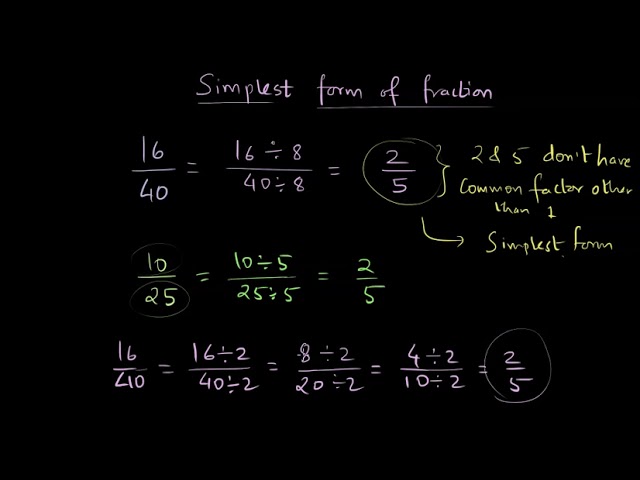 Simplest form of fraction
16/40 = 16÷8/40÷8 = 2/5 } 2 & 5 don't have
common factor other
than 1
→ Simplest form
10/25 = 10÷5/25÷5 = 2/5
16/40 = 16÷2/40÷2 = 8÷2/20÷2 = 4÷2/10÷2 = 2/5